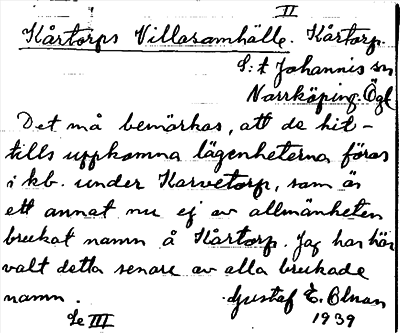 II
Kårtorps Villasamhälle. Kårtorp.
S:t Johannis sn
Norrköping. Ögl
Det må bemärkas, att de hit-
tills uppkomna lägenheterna föras
i kb. under Karvetorp, som är
ett annat nu ej av allmänheten
brukat namn å Kårtorp. Jag har här
valt detta senare av alla brukade
namn. Gustaf E.
Se III 1939